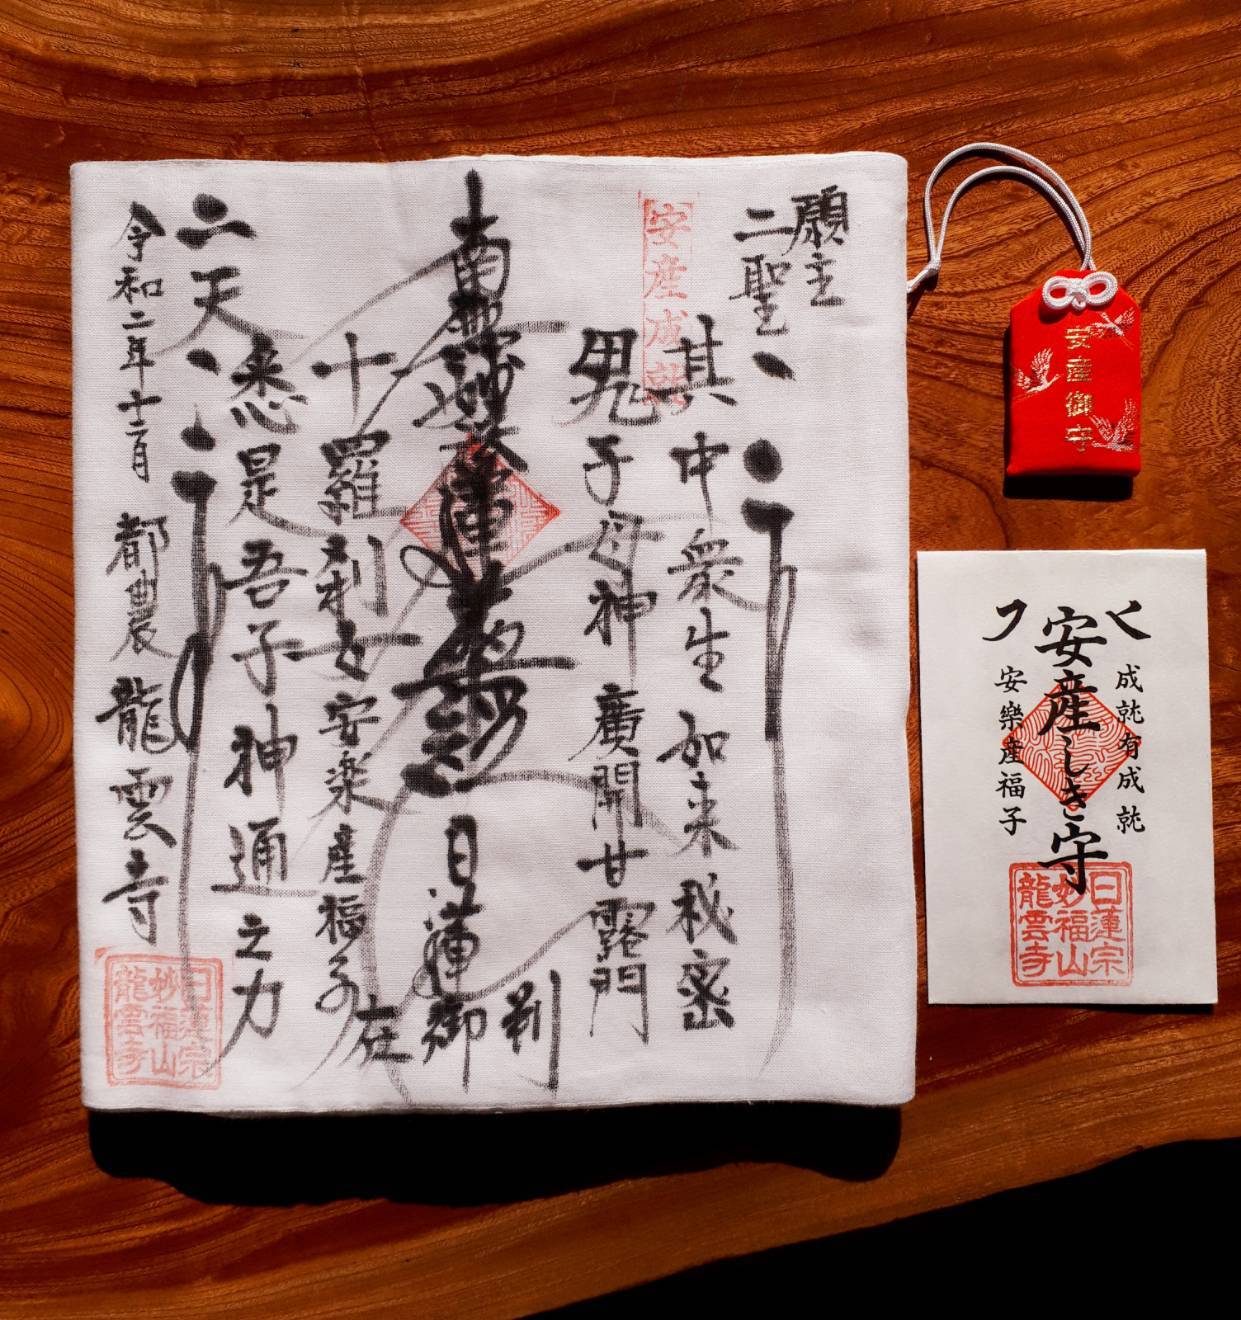 願主
二聖
安産成就
其中衆生
鬼子母神 廣開甘露門
南無妙法蓮華経 日蓮 御判
在
十羅刹女 安楽産福子
悉是吾子 神通之力
二天
令和二年十二月 都農 龍雲寺
日蓮宗
妙福山
龍雲寺
安産御守
成就有成就
安産しき守
安樂産福子
日蓮宗
妙福山
龍雲寺